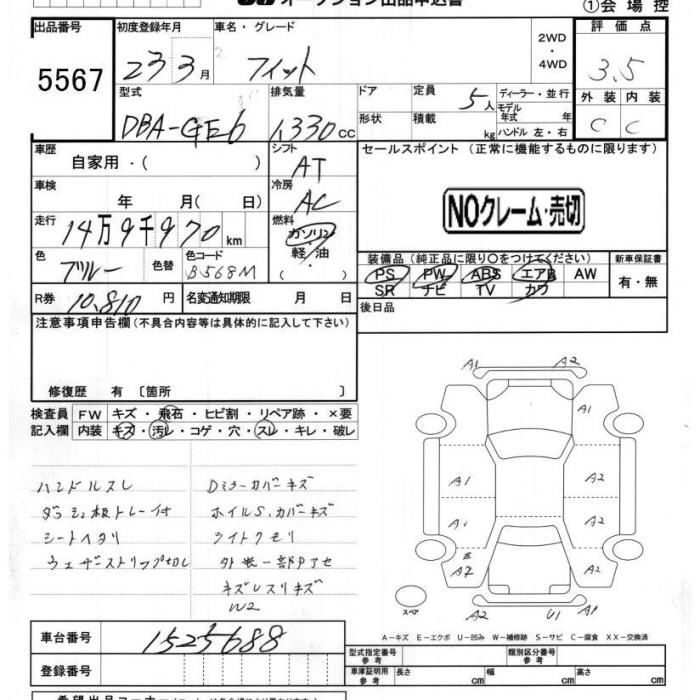 ①会場控
オークション出品申込書
出品番号 初度登録年月 車名・グレード 2WD・4WD 評価点
5567 23 3月 フィット 3.5
型式 排気量 ドア 定員 ディーラー・並行 外装 内装
DBA-GE6 1,330cc 形状 積載 5人 kg モデル年式 年 ハンドル 左・右 C C
車歴 シフト セールスポイント(正常に機能するものに限ります)
自家用・( ) AT
車検 冷房
年 月( 日) AC NOクレーム・売切
走行 燃料
14万9千970km ガソリン・軽油・( )
色 色替 色コード 装備品(純正品に限り○をつけてください) 新車保証書
ブルー B568M PS PW ABS エアB AW 有・無
SR ナビ TV カワ
R券 10,810円 名変通知期限 月 日 後日品
注意事項申告欄(不具合内容等は具体的に記入して下さい)
修復歴 有〔箇所 〕
検査員 FW キズ・飛石・ヒビ割・リペア跡・×要
記入欄 内装 キズ・汚レ・コゲ・穴・スレ・キレ・破レ
ハンドルスレ Dミラーカバーキズ
ダッシュ板トレー付 ホイルS,カバーキズ
シートヘタリ ライトクモリ
ウェザストリップ切レ 外装一部色アセ
キズレスリキズ
W2
A1 A2
A1
A1 A2
A1 A2
A2 A2
スペア A2 U1 A1
A-キズ E-エクボ U-凹み W-補修跡 S-サビ C-腐食 XX-交換済
車台番号 1525688
型式指定番号 参考 類別区分番号 参考
登録番号 車庫証明用 参考 長さ cm 幅 cm 高さ cm